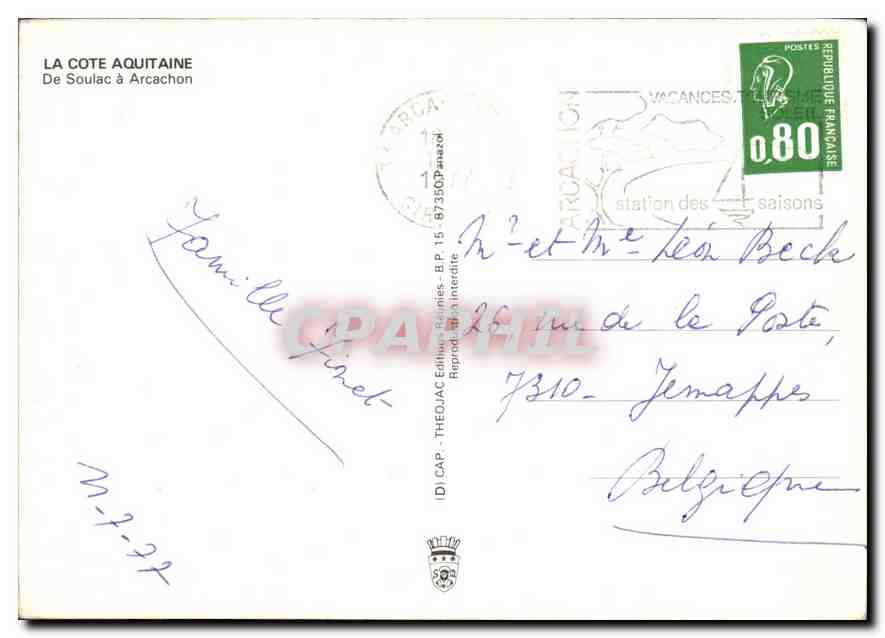 LA COTE AQUITAINE
De Soulac à Arcachon
POSTES
REPUBLIQUE FRANÇAISE
0,80
ARCACHON
VACANCES
station des saisons
Famille Finet
11-7-77
(D) CAP. - THEOJAC Editions Réunies - B.P. 15 - 87350 Panazol
Reproduction interdite
CPAPHIL
Mr et Me Léon Beck
26, rue de la Poste,
7310 - Jemappes
Belgique